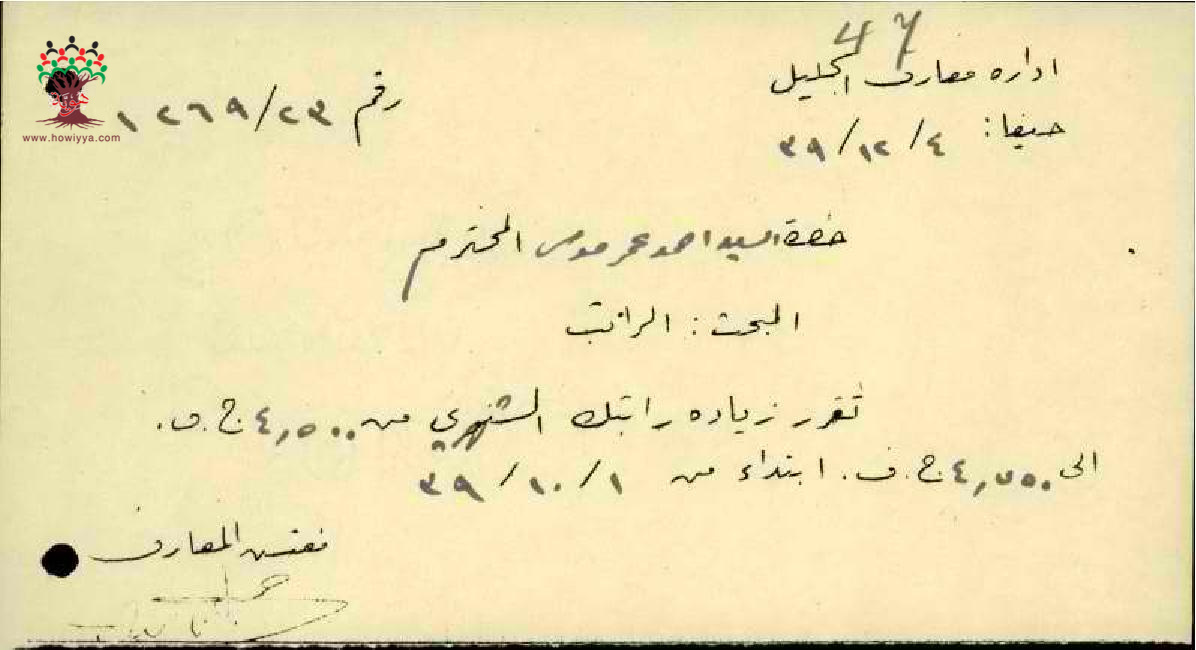 47
اداره معارف الجليل
رقم ١٢٦٩/٢٣
حيفا: ٣٩/١٢/٤
www.howiyya.com
حضرة السيد احمد عمر موسى المحترم
المبحث: الراتب
تقرر زياده راتبك الشهري من ٤,٥٠٠ ج.ف.
الى ٤,٧٥٠ ج.ف. ابتداء من ٣٩/١٠/١
مفتش المعارف